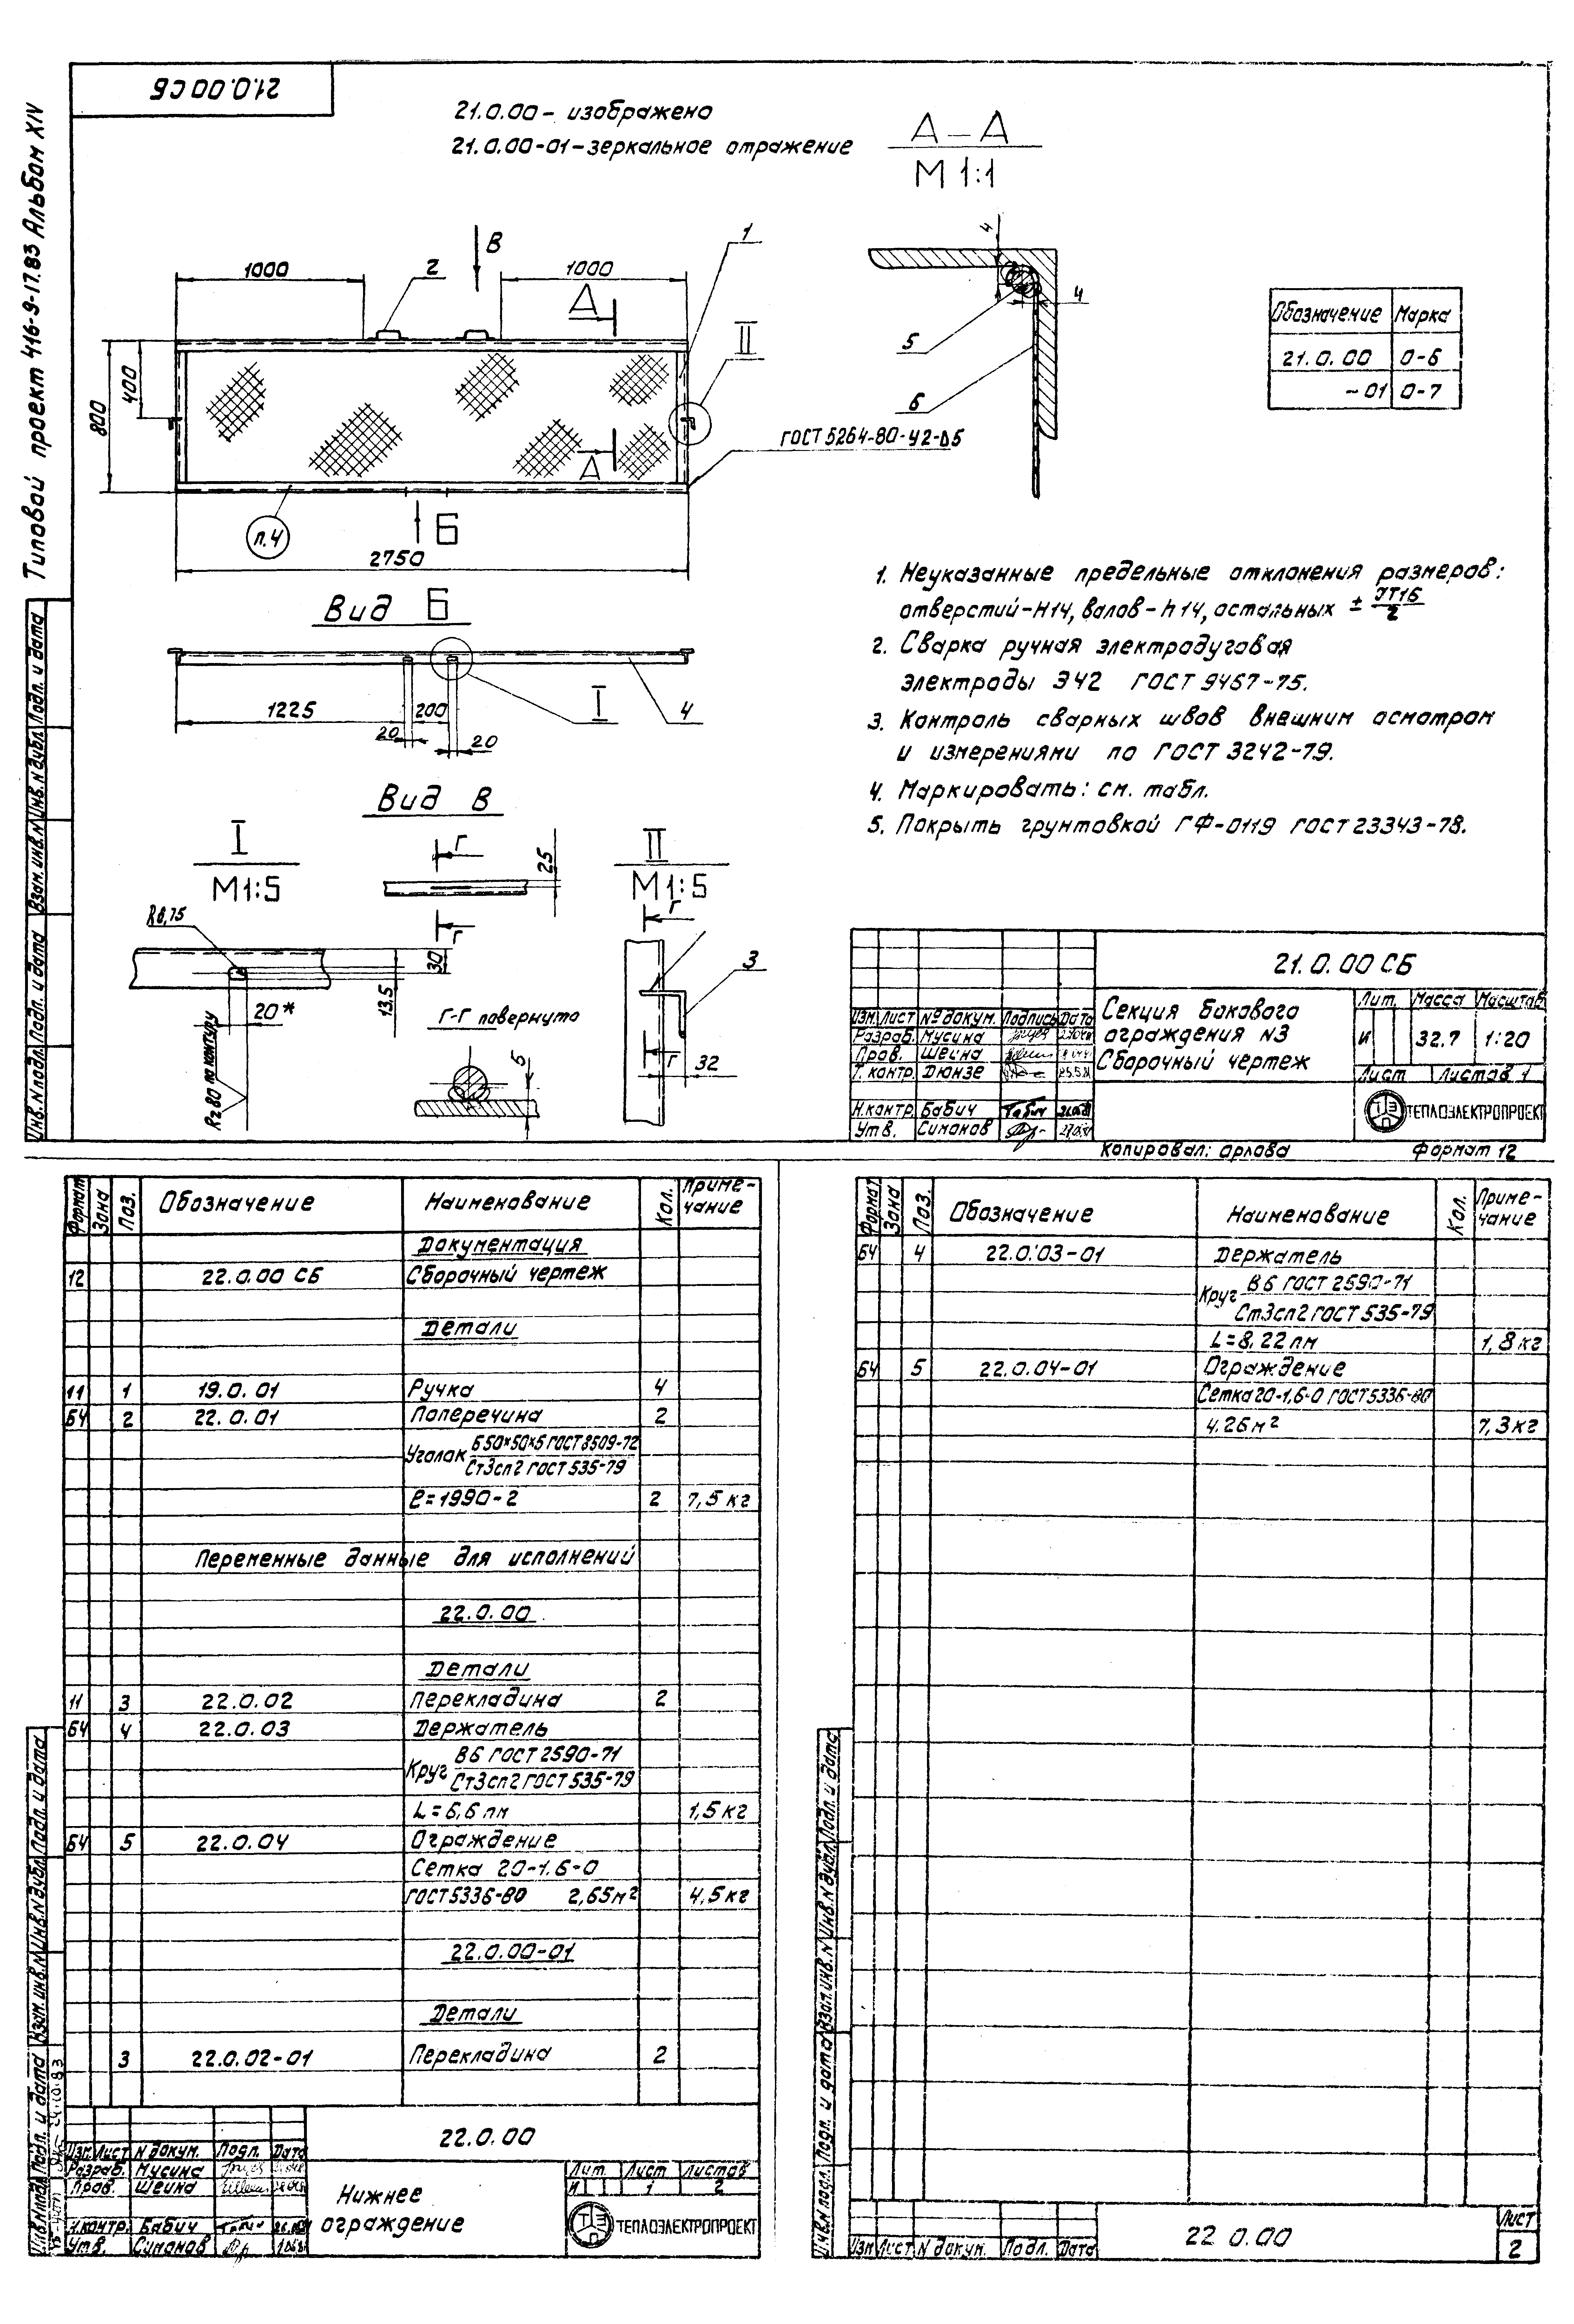 Типовой проект 416-9-17.83 Альбом XIV
21.0.00 СБ
21.0.00- изображено
21.0.00-01-зеркальное отражение
А-А
М 1:1
1000
2
В
1000
1
А
II
800
400
ГОСТ 5264-80-У2-Δ5
А
п.4
Б
2750
4
4
5
6
Обозначение Марка
21.0.00 О-6
-01 О-7
Вид Б
1225
200
20
20
I
4
Вид В
I
М1:5
R6,75
20*
13,5
30
Rz 80 по контуру
Г
25
Г
Г-Г повернуто
5
II
М1:5
Г
3
Г
32
1. Неуказанные предельные отклонения размеров:
отверстий-Н14, валов-h14, остальных ± IT16/2
2. Сварка ручная электродуговая
электроды Э42 ГОСТ 9467-75.
3. Контроль сварных швов внешним осмотром
и измерениями по ГОСТ 3242-79.
4. Маркировать: см. табл.
5. Покрыть грунтовкой ГФ-0119 ГОСТ 23343-78.
21.0.00 СБ
Изм. Лист № докум. Подпись Дата
Разраб. Мусина
Пров. Шеина
Т. контр. Дюнзе
Н.контр. Бабич
Утв. Симонов
Секция бокового
ограждения №3
Сборочный чертеж
Лит. Масса Масштаб
И 32.7 1:20
Лист Листов 1
ТЕПЛОЭЛЕКТРОПРОЕКТ
Копировал: Орлова Формат 12
Инв.№ подл. Подп. и дата Взам.инв.№ Инв.№ дубл. Подп. и дата
Формат Зона Поз. Обозначение Наименование Кол. Примечание
Документация
12 22.0.00 СБ Сборочный чертеж
Детали
11 1 19.0.01 Ручка 4
БЧ 2 22.0.01 Поперечина 2
Уголок Б50×50×5 ГОСТ 8509-72
Ст3сп2 ГОСТ 535-79
ℓ=1990-2 2 7,5 кг
Переменные данные для исполнений
22.0.00
Детали
11 3 22.0.02 Перекладина 2
БЧ 4 22.0.03 Держатель
Круг В6 ГОСТ 2590-71
Ст3сп2 ГОСТ 535-79
L=6,6 пм 1,5 кг
БЧ 5 22.0.04 Ограждение
Сетка 20-1.6-0
ГОСТ 5336-80 2,65м² 4,5 кг
22.0.00-01
Детали
3 22.0.02-01 Перекладина 2
Инв.№ подл. Подп. и дата Взам.инв.№ Инв.№ дубл. Подп. и дата
24.10.83
22.0.00
Изм. Лист № докум. Подп. Дата
Разраб. Мусина
Пров. Шеина
Н.контр. Бабич
Утв. Симонов
Нижнее
ограждение
Лит. Лист Листов
И 1 2
ТЕПЛОЭЛЕКТРОПРОЕКТ
Формат Зона Поз. Обозначение Наименование Кол. Примечание
БЧ 4 22.0.03-01 Держатель
Круг В6 ГОСТ 2590-71
Ст3сп2 ГОСТ 535-79
L=8,22 пм 1,8 кг
БЧ 5 22.0.04-01 Ограждение
Сетка 20-1,6-0 ГОСТ 5336-80
4.26м² 7,3 кг
Инв.№ подл. Подп. и дата Взам.инв.№ Инв.№ дубл. Подп. и дата
Изм Лист № докум. Подп. Дата
22 0.00
Лист
2